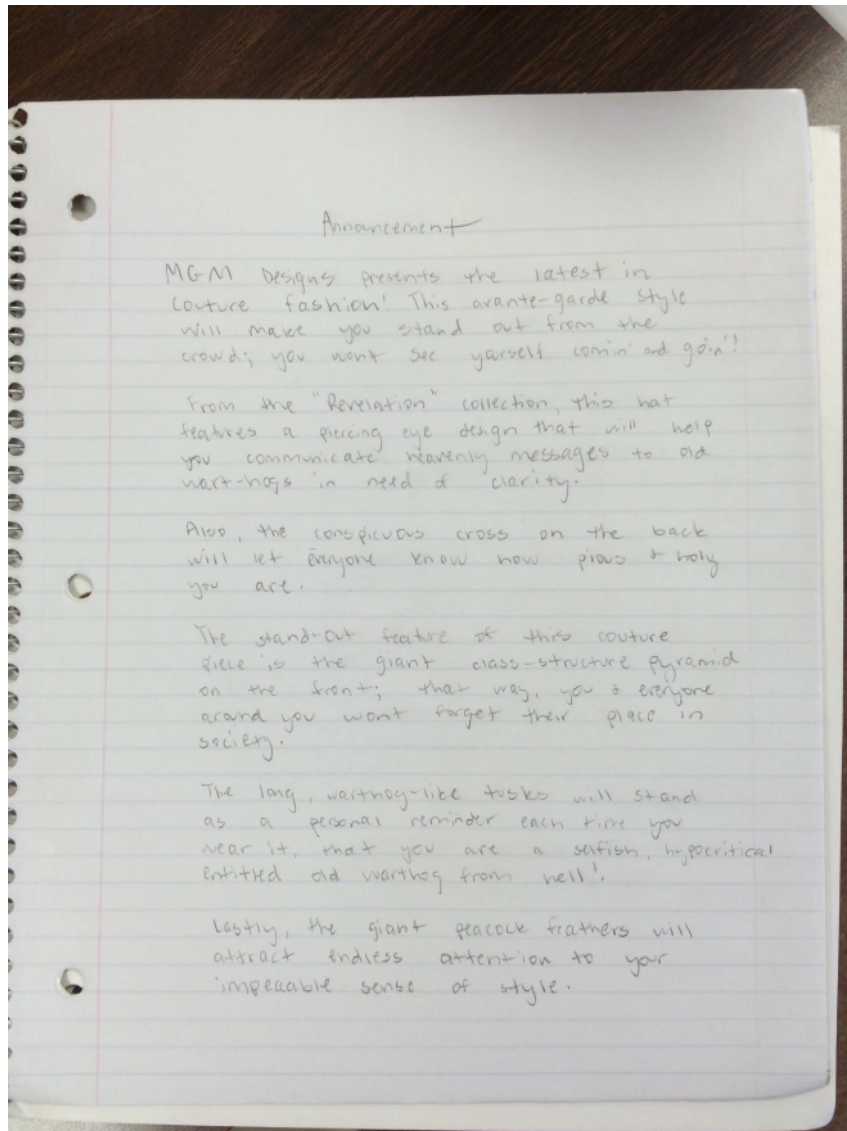 Announcement
MGM Designs presents the latest in
couture fashion! This avante-garde style
will make you stand out from the
crowd; you wont see yourself comin' and goin'!
From the "Revelation" collection, this hat
features a piercing eye design that will help
you communicate heavenly messages to old
wart-hogs in need of clarity.
Also, the conspicuous cross on the back
will let everyone know how pious & holy
you are.
The stand-out feature of this couture
piece is the giant class-structure pyramid
on the front; that way, you & everyone
around you wont forget their place in
society.
The long, warthog-like tusks will stand
as a personal reminder each time you
wear it, that you are a selfish, hypocritical
entitled old warthog from hell!
Lastly, the giant peacock feathers will
attract endless attention to your
impeccable sense of style.